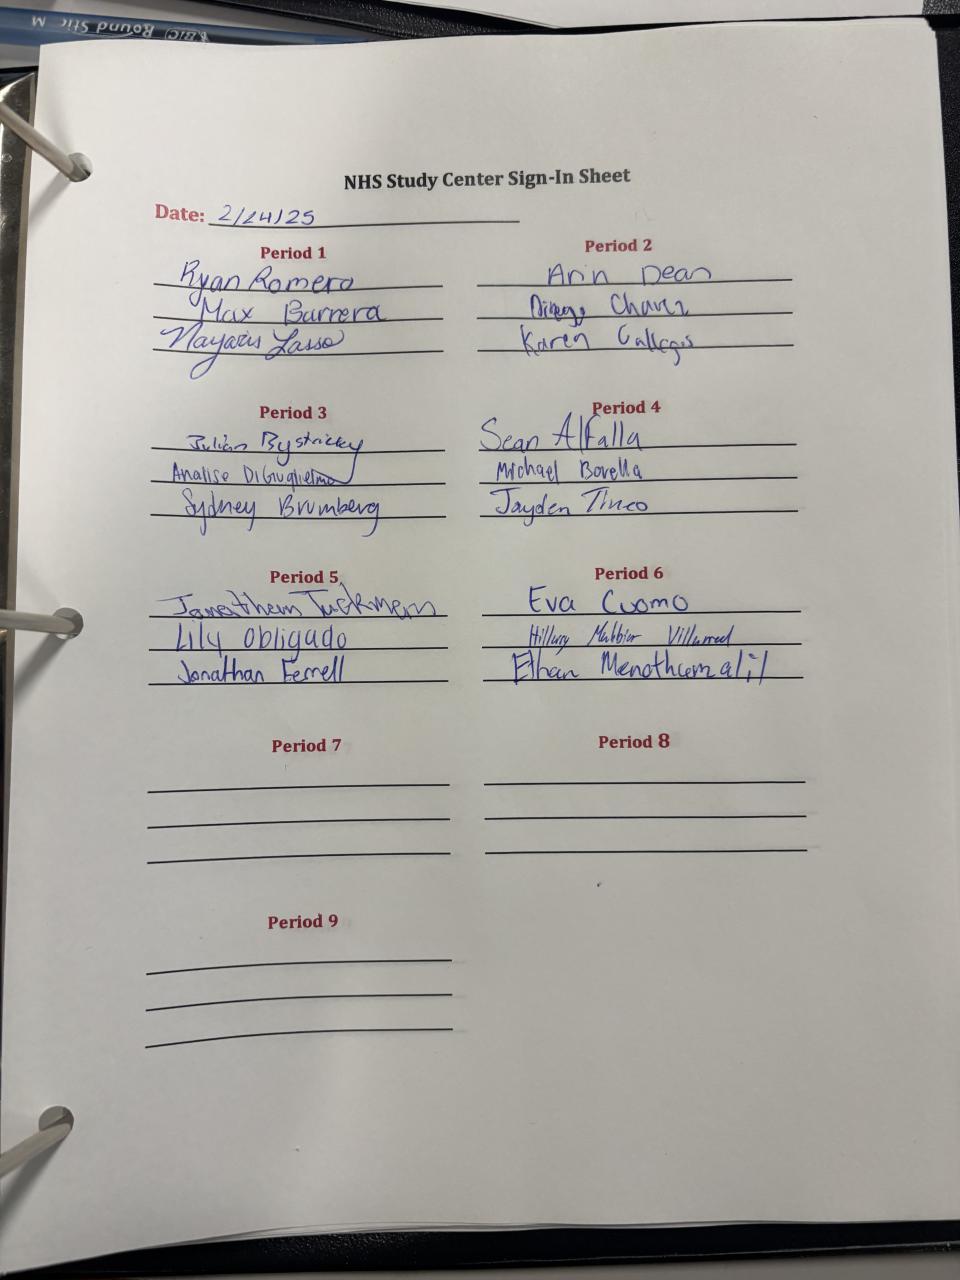 BIC Round Stic M
NHS Study Center Sign-In Sheet
Date: 2/24/25
Period 1
Ryan Romero
Max Barrera
Nayaris Lasso
Period 2
Arin Dean
Chavez
Karen Gallegos
Period 3
Julian Bystricky
Analise DiGuglielmo
Sydney Brumberg
Period 4
Sean Alfalla
Michael Borella
Jayden Tineo
Period 5
Jonathan Tuckman
Lily Obligado
Jonathan Ferrell
Period 6
Eva Cuomo
Hillary
Ethan Menothumalil
Period 7
Period 8
Period 9